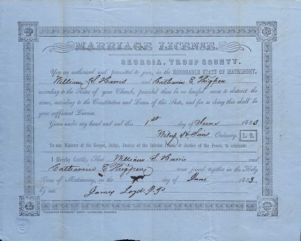 MARRIAGE LICENSE.
GEORGIA, TROUP COUNTY.
You are authorized and permitted to join, in the HONORABLE STATE OF MATRIMONY,
William H. Harris and Catharine E.
according to the Rites of your Church, provided there be no lawful cause to obstruct the
same, according to the Constitution and Laws of this State, and for so doing this shall be
your sufficient License.
Given under my hand and seal this 1st day of June
Ordinary. L. S.
To any Minister of the Gospel, Judge, Justice of the Inferior Court or Justice of the Peace, to celebrate.
I Hereby Certify, That William H. Harris and
Catharine E. were joined together in the Holy
Bans of Matrimony, on the day of June
by me. James Loyd J.P.